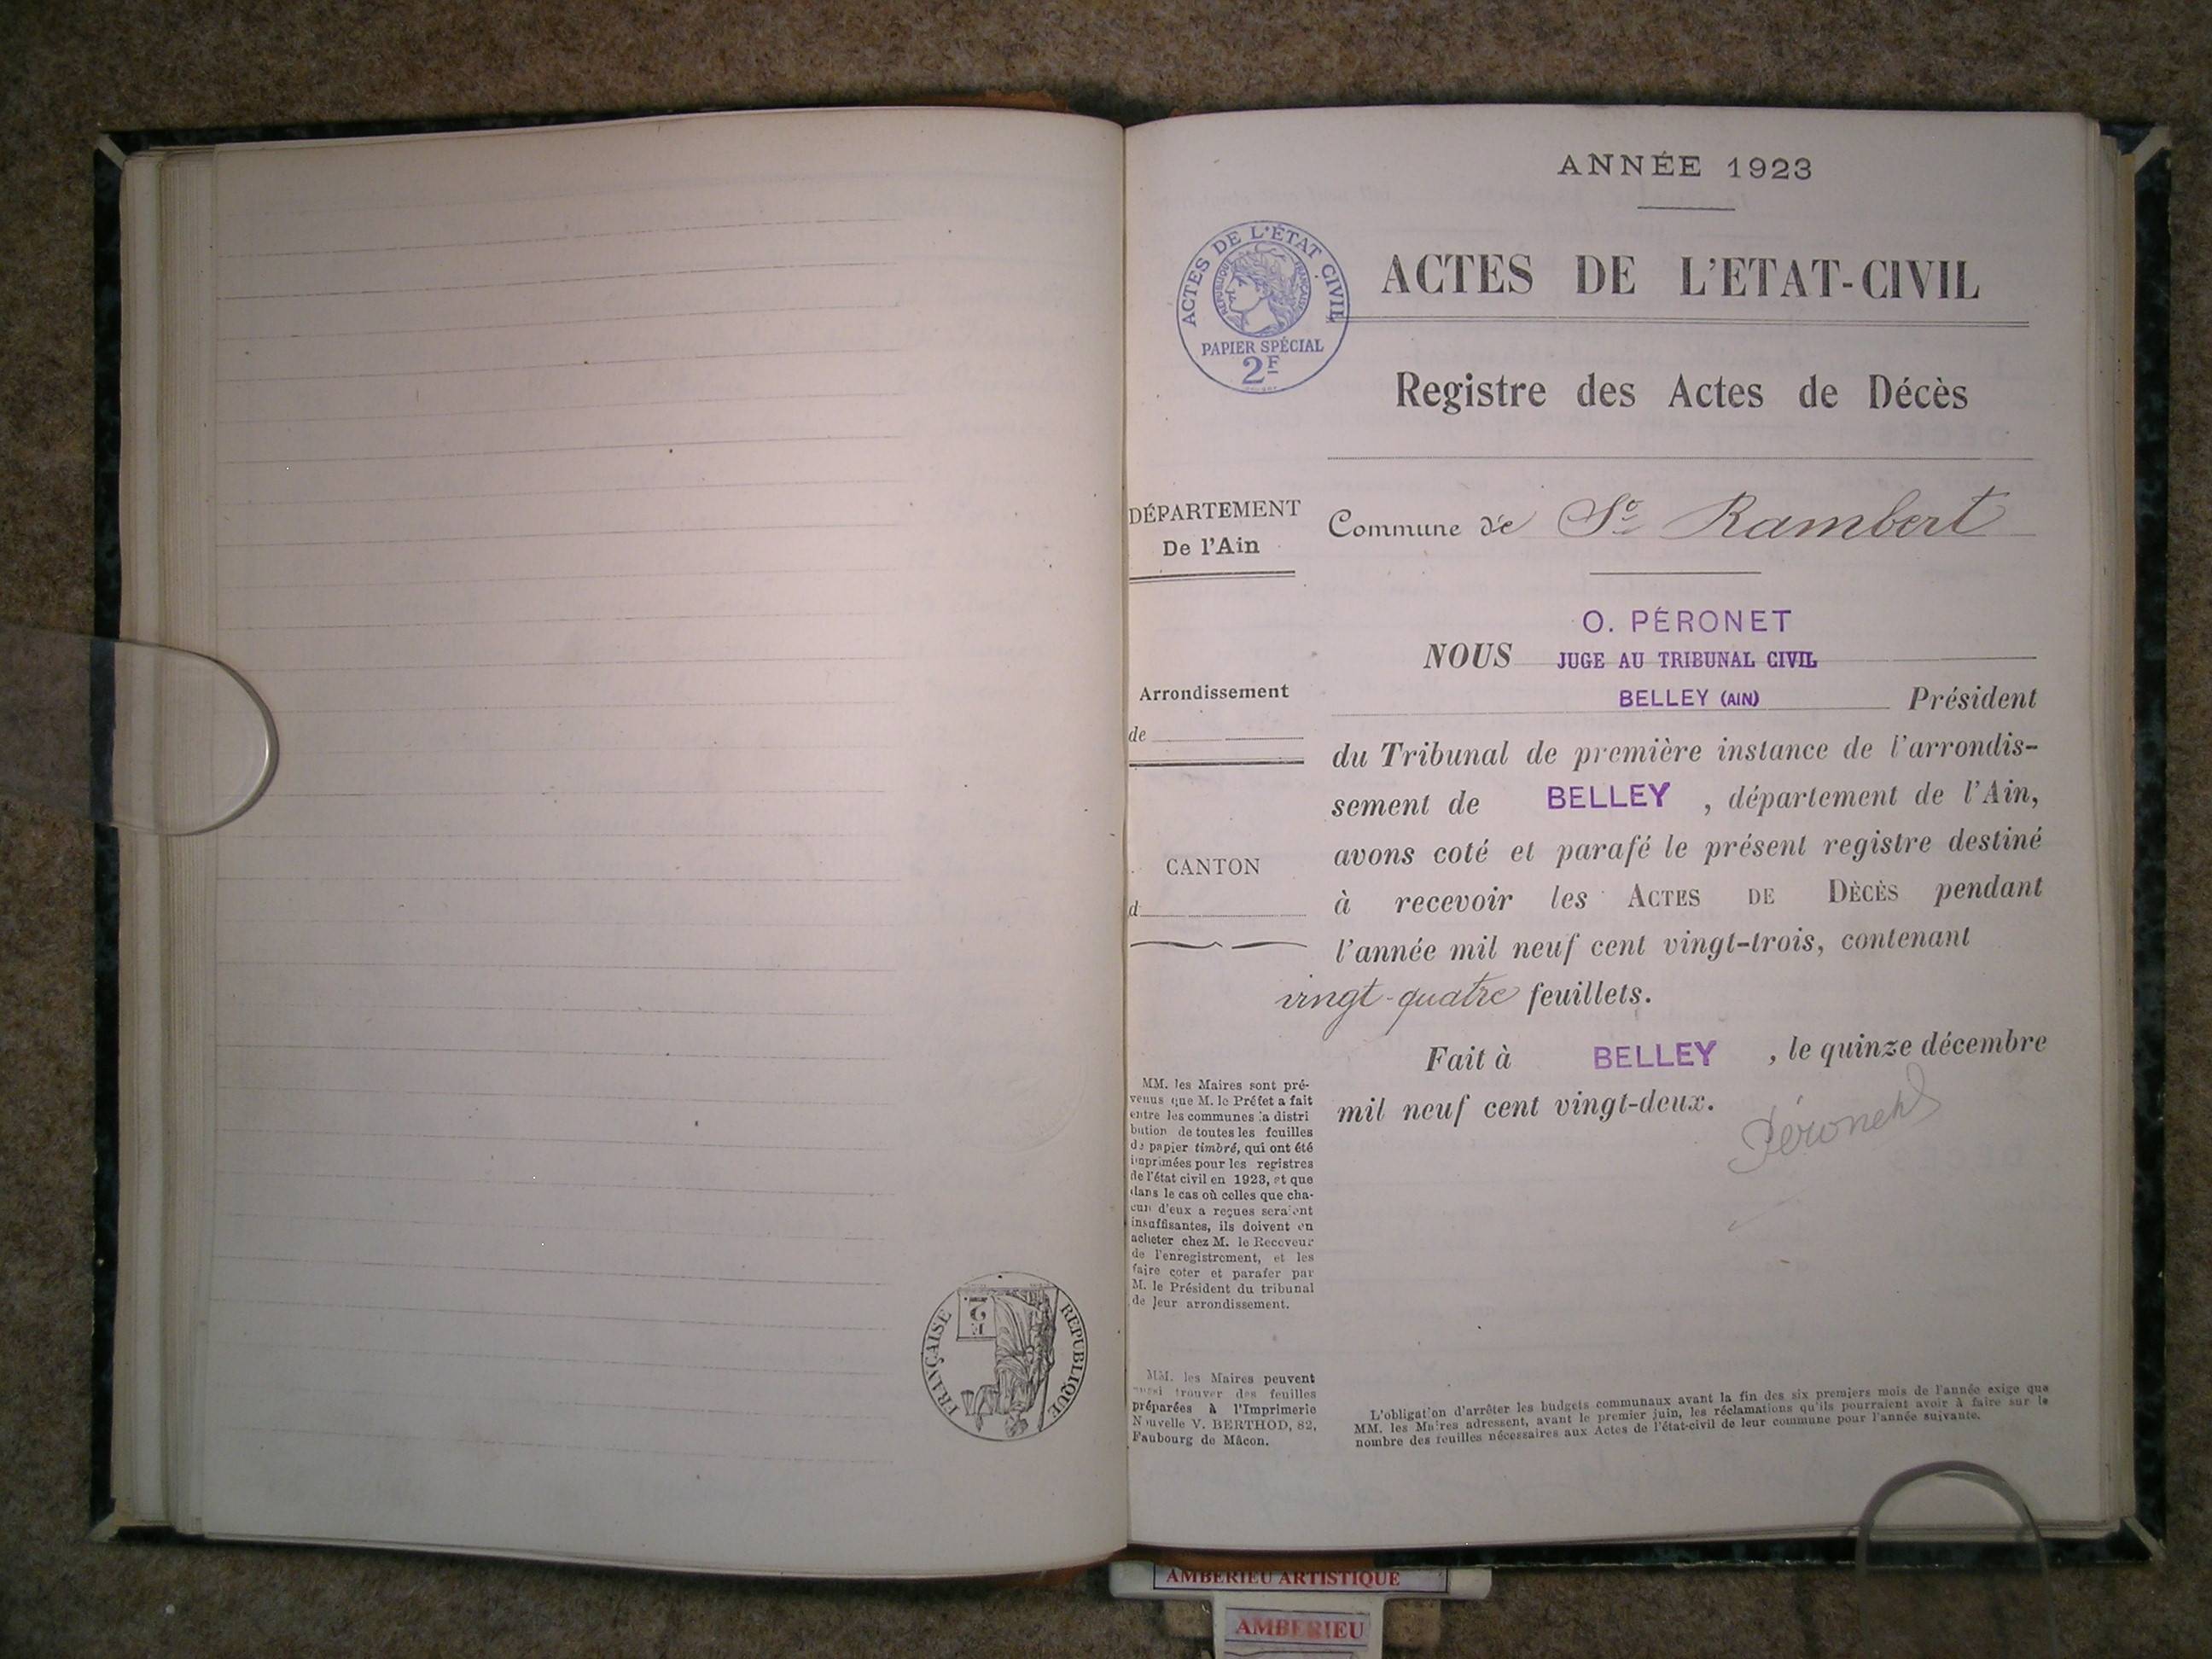 ANNÉE 1923
ACTES DE L'ÉTAT CIVIL
RÉPUBLIQUE FRANÇAISE
PAPIER SPÉCIAL
2F
ACTES DE L'ETAT-CIVIL
Registre des Actes de Décès
DÉPARTEMENT
De l'Ain
Commune de St Rambert
O. PÉRONET
NOUS JUGE AU TRIBUNAL CIVIL
BELLEY (AIN) Président
Arrondissement
de
du Tribunal de première instance de l'arrondis-
sement de BELLEY , département de l'Ain,
avons coté et parafé le présent registre destiné
CANTON
d
à recevoir les ACTES DE DÉCÈS pendant
l'année mil neuf cent vingt-trois, contenant
vingt-quatre feuillets.
Fait à BELLEY , le quinze décembre
mil neuf cent vingt-deux.
Péronet
MM. les Maires sont pré-
venus que M. le Préfet a fait
entre les communes la distri
bution de toutes les feuilles
de papier timbré, qui ont été
imprimées pour les registres
de l'état civil en 1923, et que
dans le cas où celles que cha-
cun d'eux a reçues seraient
insuffisantes, ils doivent en
acheter chez M. le Receveur
de l'enregistrement, et les
faire coter et parafer par
M. le Président du tribunal
de leur arrondissement.
MM. les Maires peuvent
aussi trouver des feuilles
préparées à l'Imprimerie
Nouvelle V. BERTHOD, 82,
Faubourg de Mâcon.
L'obligation d'arrêter les budgets communaux avant la fin des six premiers mois de l'année exige que
MM. les Maires adressent, avant le premier juin, les réclamations qu'ils pourraient avoir à faire sur le
nombre des feuilles nécessaires aux Actes de l'état-civil de leur commune pour l'année suivante.
RÉPUBLIQUE FRANÇAISE
2F
AMBERIEU ARTISTIQUE
AMBERIEU